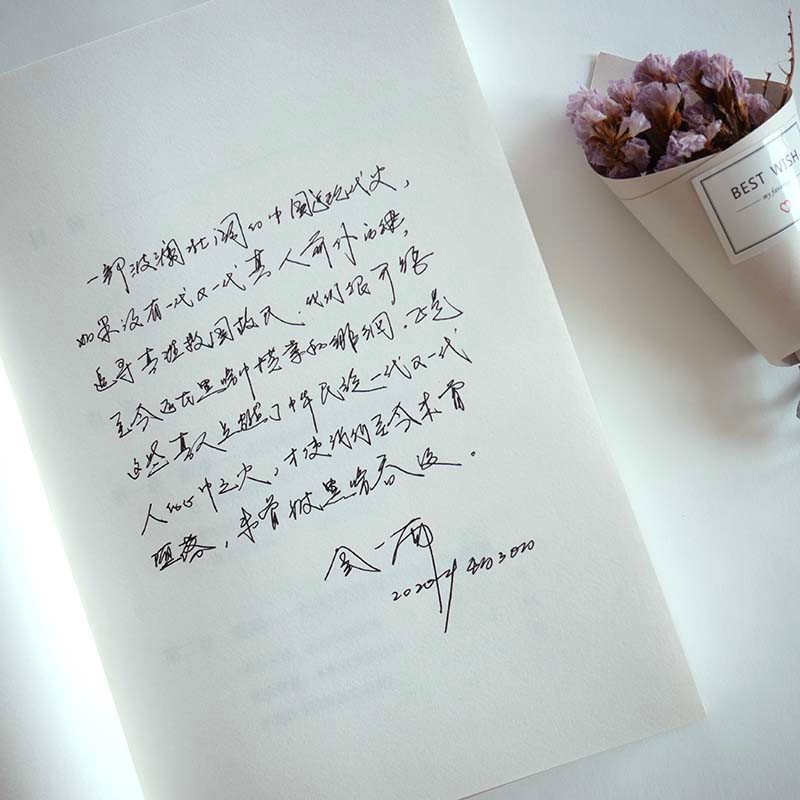 一部波澜壮阔的中国近现代史，
如果没有一代又一代真人前仆后继，
追寻真理救国救民，我们很可能
至今还在黑暗中摸索和徘徊。正是
这些真人点燃了中华民族一代又一代
人心中之火，才使我们至今未曾
堕落，未曾被黑暗吞没。
金一南
2020年4月30日
BEST WISH